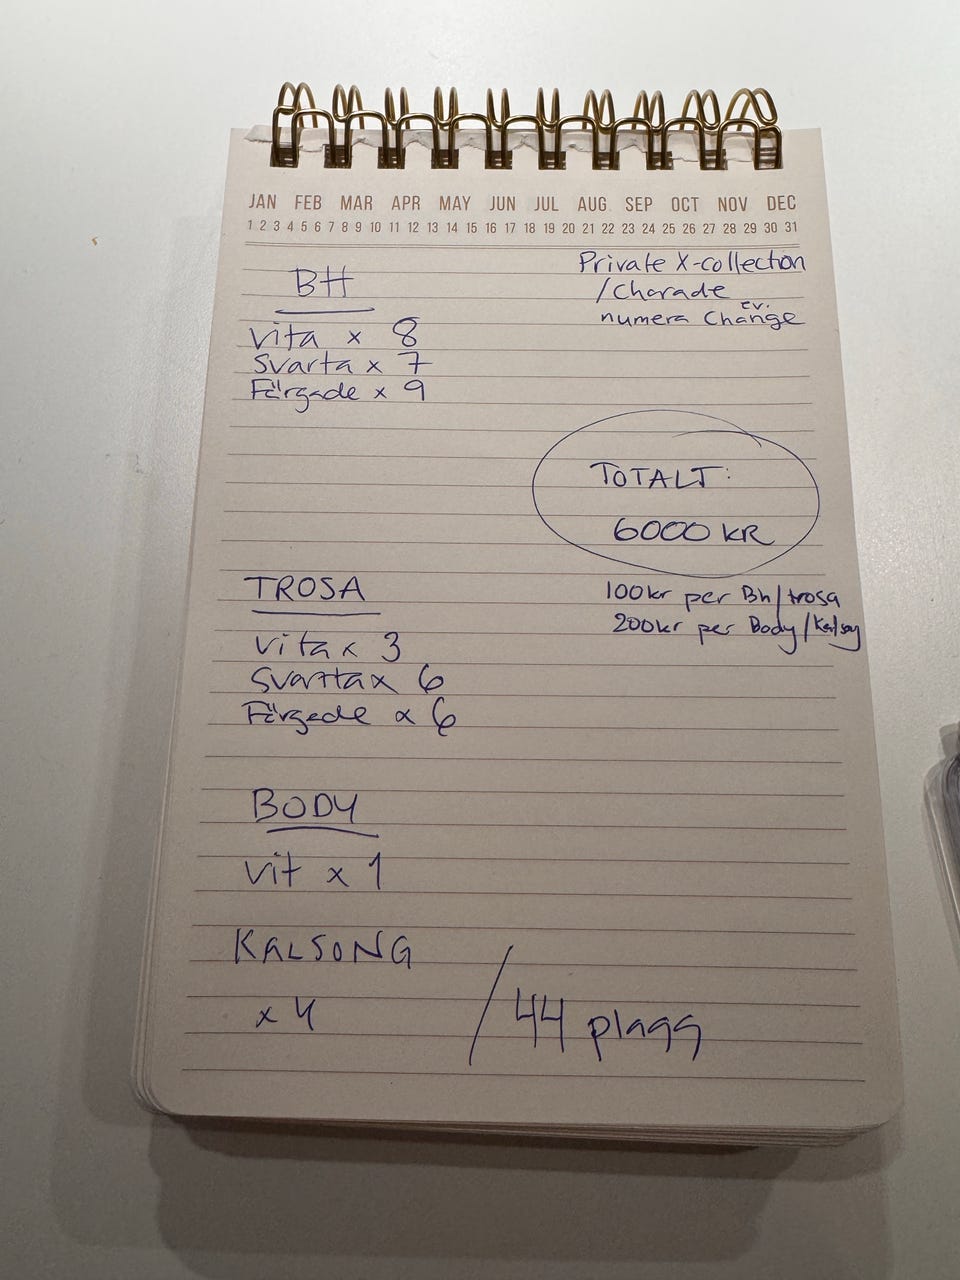 JAN FEB MAR APR MAY JUN JUL AUG SEP OCT NOV DEC
1 2 3 4 5 6 7 8 9 10 11 12 13 14 15 16 17 18 19 20 21 22 23 24 25 26 27 28 29 30 31
Private X-collection
/Charade
ev.
numera Change
BH
Vita x 8
Svarta x 7
Färgade x 9
TOTALT:
6000 KR
100kr per Bh/trosa
200kr per Body/Kalsong
TROSA
Vita x 3
Svarta x 6
Färgade x 6
BODY
Vit x 1
KALSONG
x 4
/ 44 plagg